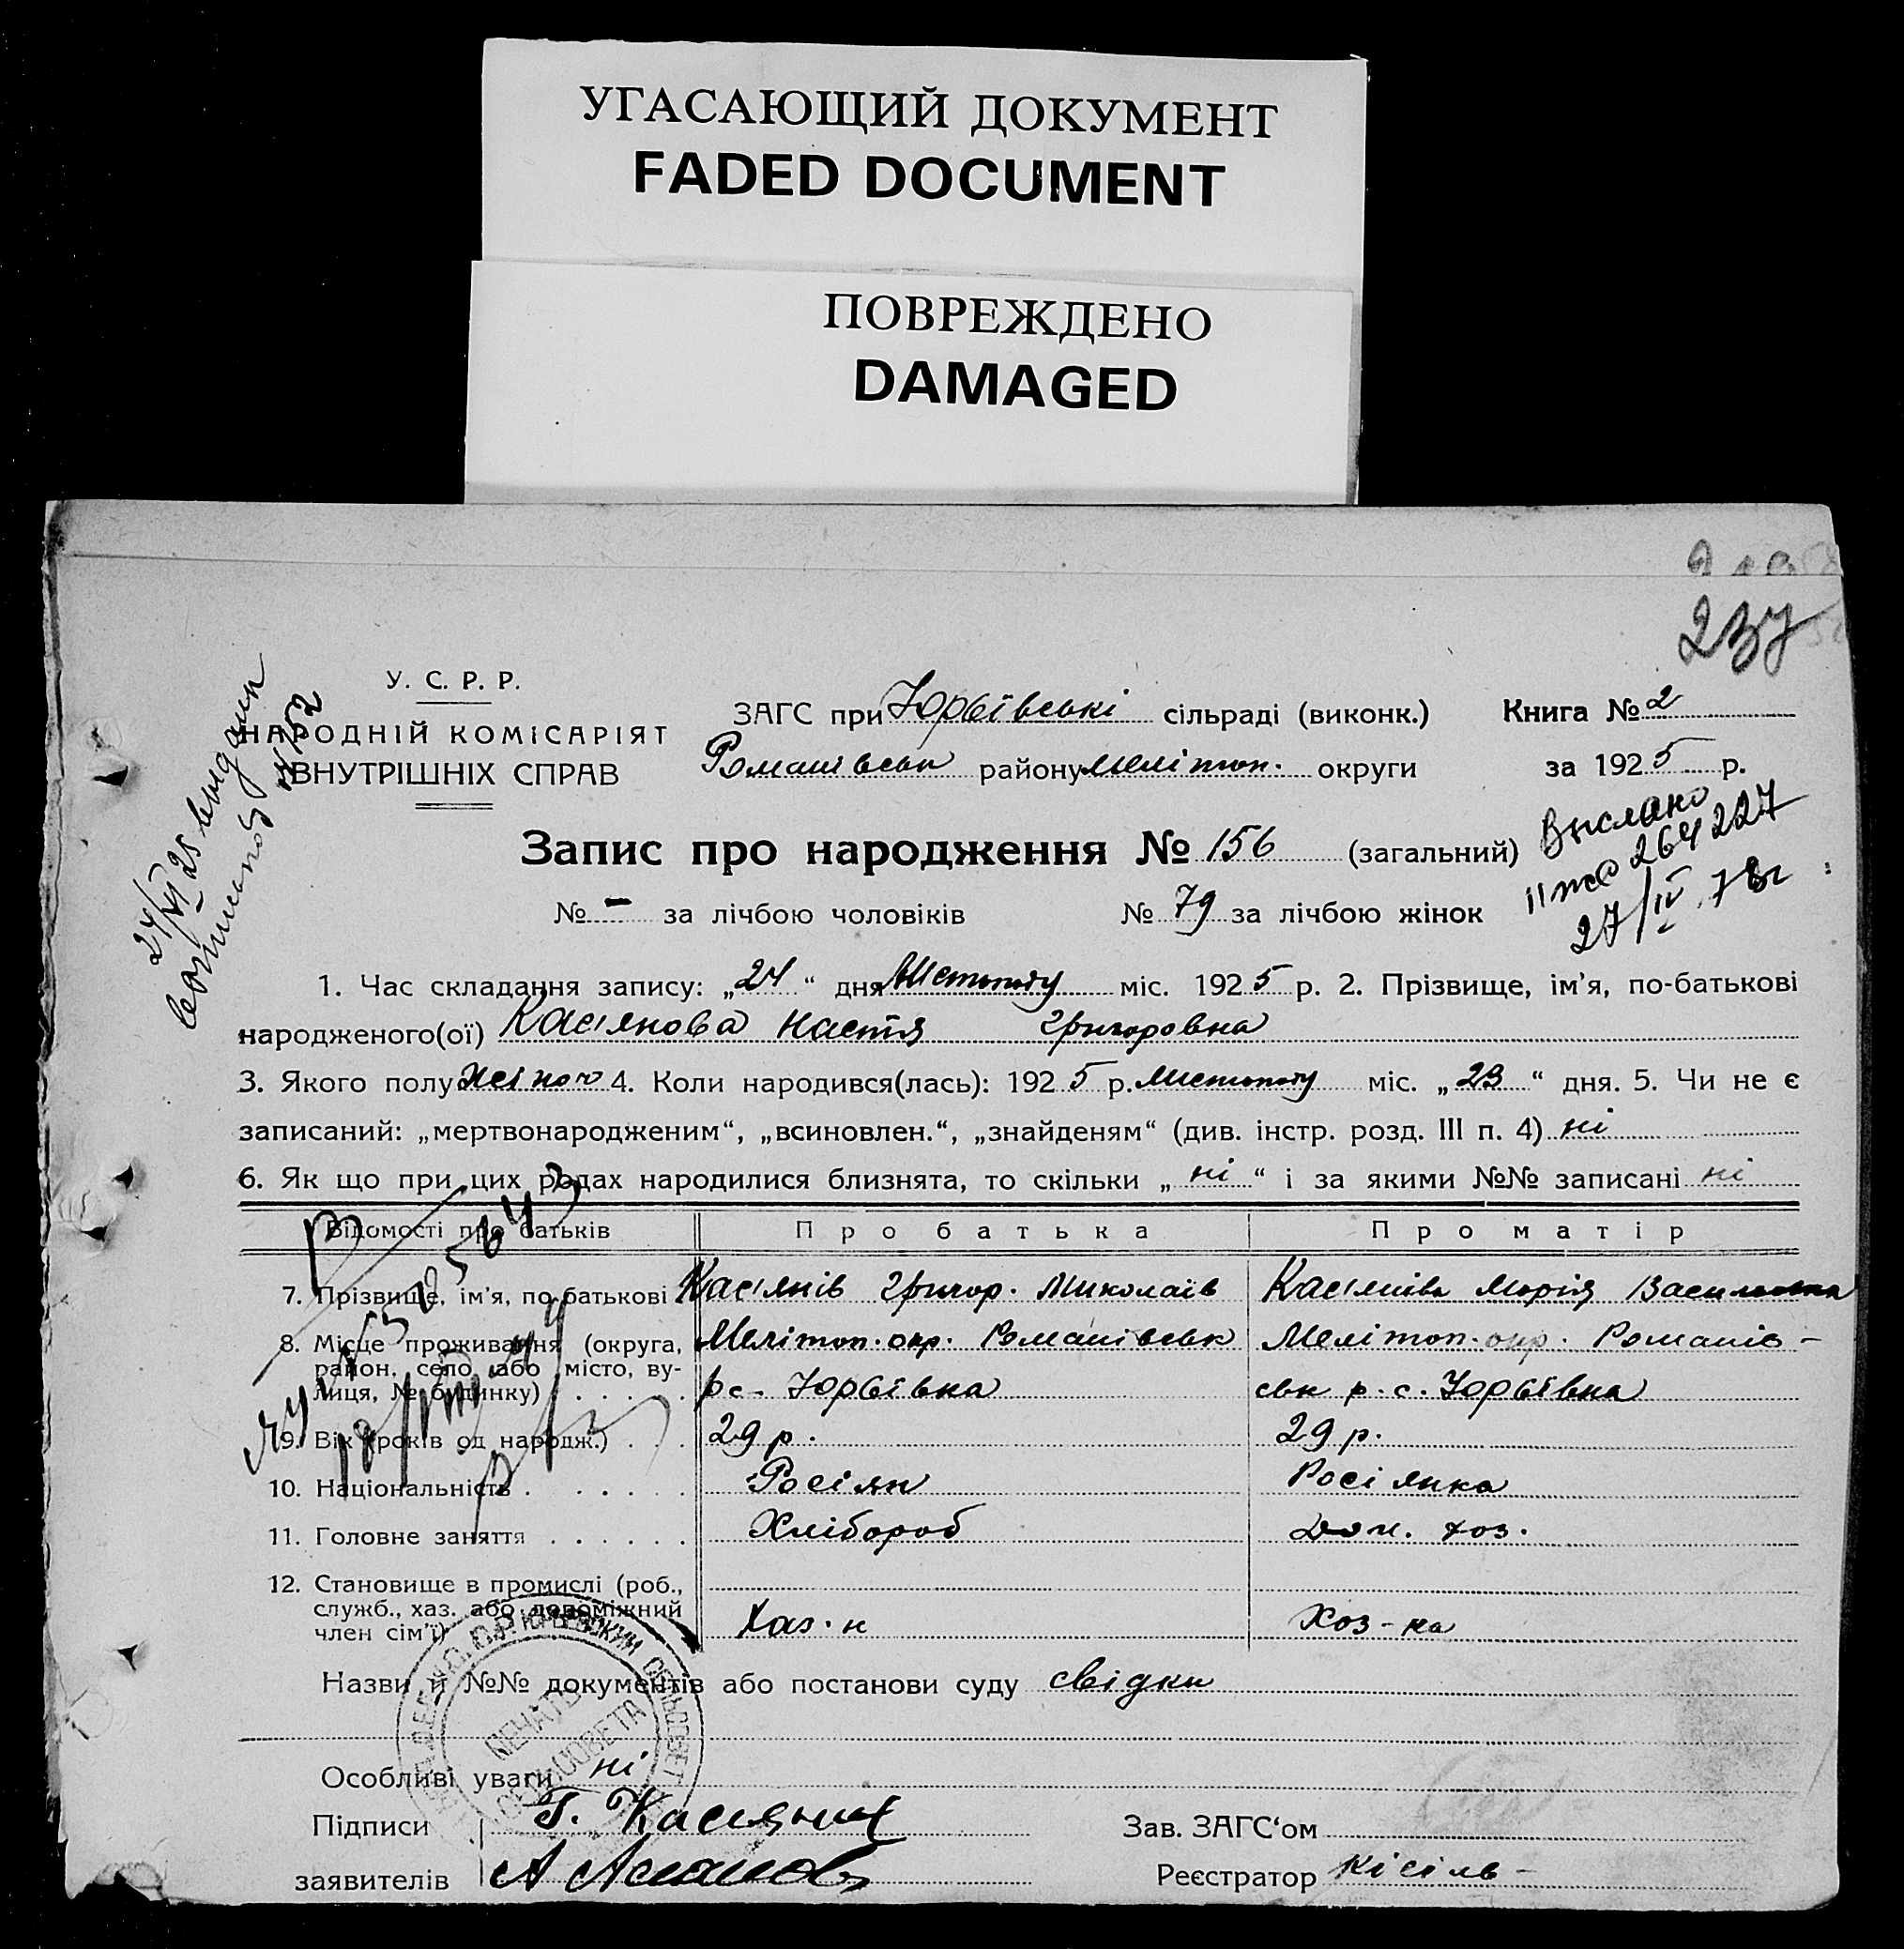 УГАСАЮЩИЙ ДОКУМЕНТ
FADED DOCUMENT
ПОВРЕЖДЕНО
DAMAGED
237
У. С. Р. Р.
НАРОДНІЙ КОМІСАРІЯТ
ВНУТРІШНІХ СПРАВ
ЗАГС при Юрвївські сільраді (виконк.)
Романівськ району Мелітоп. округи
Книга № 2
за 1925 р.
Запис про народження № 156 (загальний)
№ – за лічбою чоловіків № 79 за лічбою жінок
Выслано
264227
27/IV 78г
1. Час складання запису: „24“ дня Листопаду міс. 1925 р. 2. Прізвище, ім'я, по-батькові
народженого(ої) Касіянова Настя Григоровна
3. Якого полу жіноч 4. Коли народився(лась): 1925 р. Листопаду міс. „23“ дня. 5. Чи не є
записаний: „мертвонародженим“, „всиновлен.“, „знайденям“ (див. інстр. розд. III п. 4) ні
6. Як що при цих родах народилися близнята, то скільки „ні“ і за якими №№ записані ні
Відомості про батьків Про батька Про матір
7. Прізвище, ім'я, по-батькові Касіянів Григор. Миколаїв Касіянівa Марія Васильовна
8. Місце проживання (округа, Мелітоп. окр. Романівськ Мелітоп. окр. Романів-
район, село або місто, ву-
лиця, № будинку) р с- Юрвївка ськ р. с. Юрвївка
9. Вік (років од народж.) 29 р. 29 р.
10. Національність Росіян Росіянка
11. Головне заняття Хлібороб Дом. хоз.
12. Становище в промислі (роб.,
служб., хаз. або допоміжний
член сім'ї) Хаз-н Хоз-ка
Назви й №№ документів або постанови суду свідки
ПЕЧАТЬ
СЕЛЬСОВЕТА
Особливі уваги ні
Підписи Г. Касянич Зав. ЗАГС'ом
заявителів Реєстратор Кісіль-